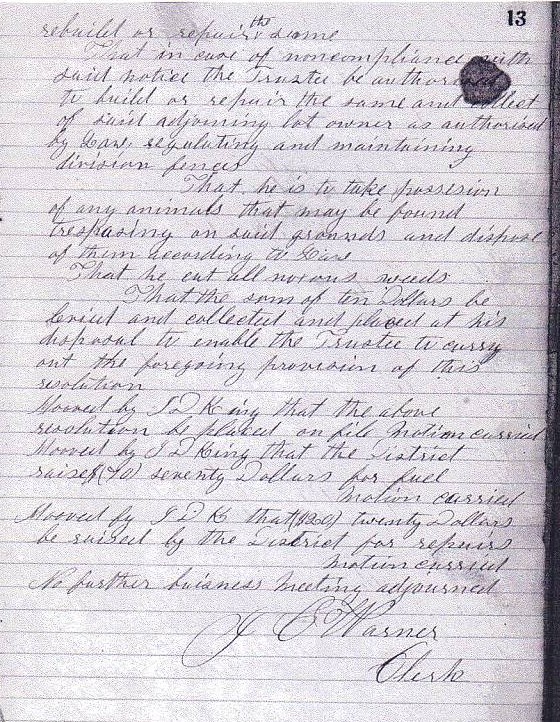 13
rebuild or repair the same
That in case of noncompliance with
said notice the Trustee be authorised
to build or repair the same and collect
of said adjoining lot owner as authorised
by Law, regulating and maintaining
division fences
That he is to take possesion
of any animals that may be found
trespasing on said grounds and dispose
of them according to Law
That he cut all noxous weeds
That the som of ten Dollars be
levied and collected and placed at his
disposal to enable the Trustee to carry
out the foregoing provision of this
resolution
Mooved by J D King that the above
resolution be placed on file Motion carried
Mooved by J D King that the District
raise $(70) seventy Dollars for fuel
Motion carried
Mooved by J D K that ($20) twenty Dollars
be raised by the District for repairs
Motion carried
No further buisness Meeting adjourned
J E Warner
Clerk